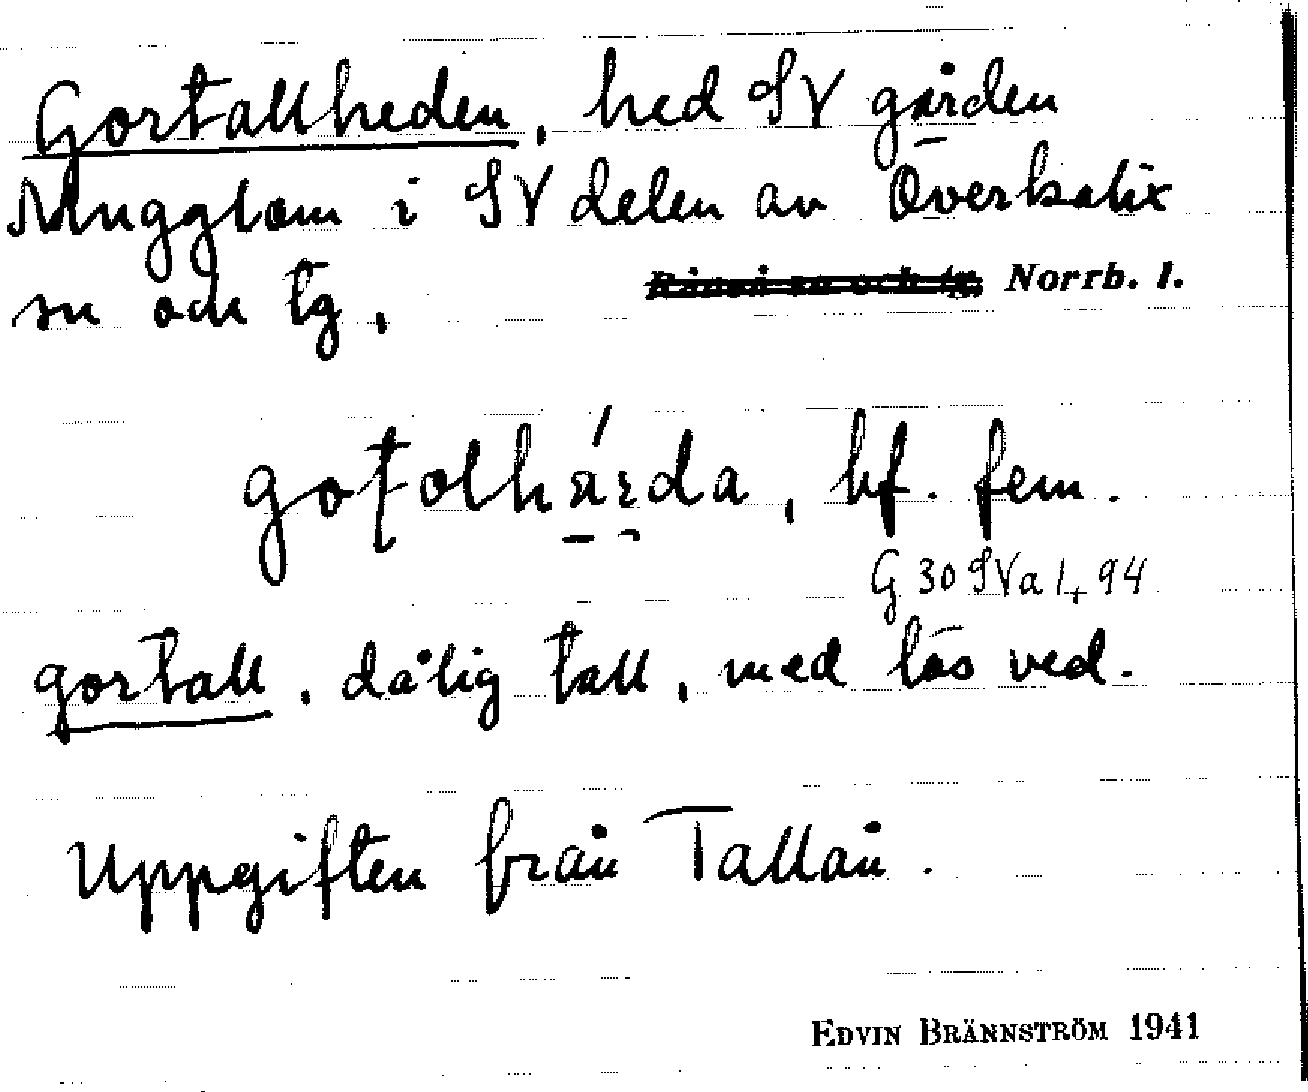 Gortallheden, hed SV gården
Muggtam i SV delen av Överkalix
sn och tg, Norrb. l.
gotolhárda, bf. fem.
G 30 SVa 1, 94
gortall, dålig tall, med lös ved.
Uppgiften från Tallån.
EDVIN BRÄNNSTRÖM 1941